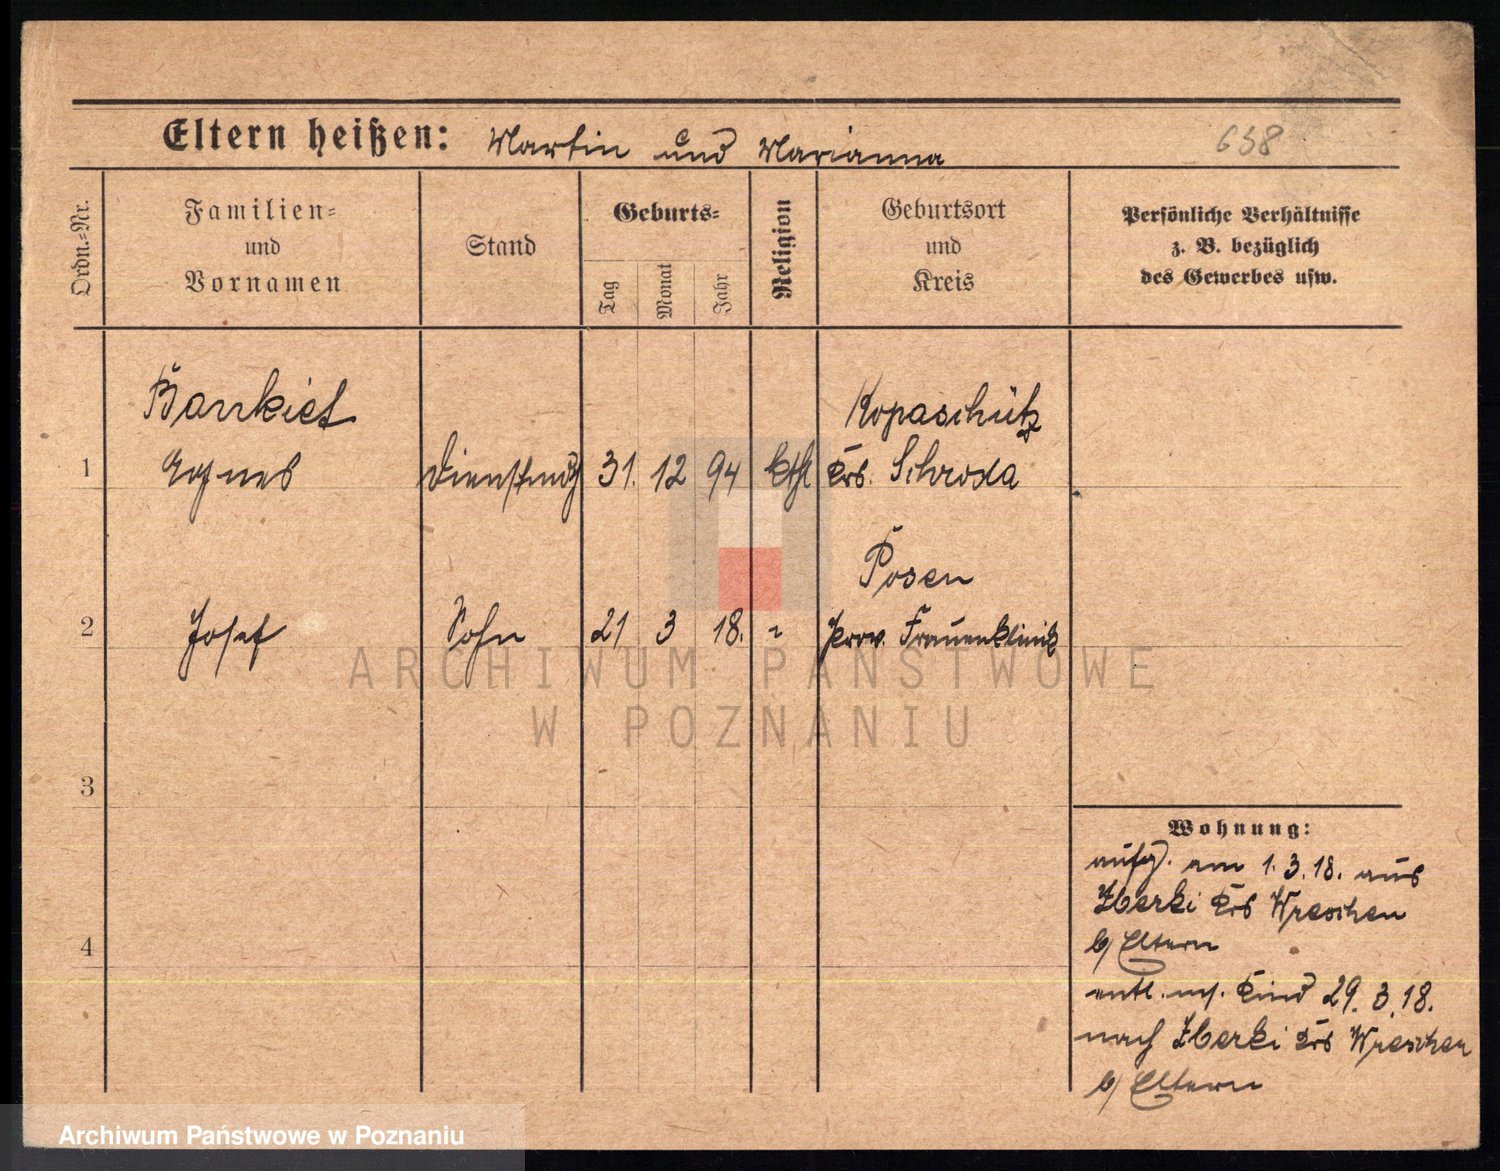 Eltern heißen: Martin und Marianna
638
Ordn.=Nr.
Familien=
und
Vornamen
Stand
Geburts=
Tag
Monat
Jahr
Religion
Geburtsort
und
Kreis
Persönliche Verhältnisse
z. B. bezüglich
des Gewerbes usw.
Bankiet Kopaschütz
1 Agnes Dienstmd 31. 12 94 kth Krs. Schroda
Posen
2 Josef Sohn 21 3 18. " Prov. Frauenklinik
3
Wohnung:
aufg. am 1.3.18. aus
Zberki Krs Wreschen
b/ Eltern
4
entl. m/. Kind 29.3.18.
nach Zberki Krs Wreschen
b/ Eltern
ARCHIWUM PAŃSTWOWE
W POZNANIU
Archiwum Państwowe w Poznaniu